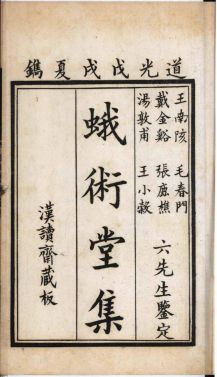 道光戊戌夏鐫
王南陔 毛春門
戴金谿 張鹿樵
湯敦甫 王小㲄
六先生鑒定
蛾術堂集
漢讀齋藏板